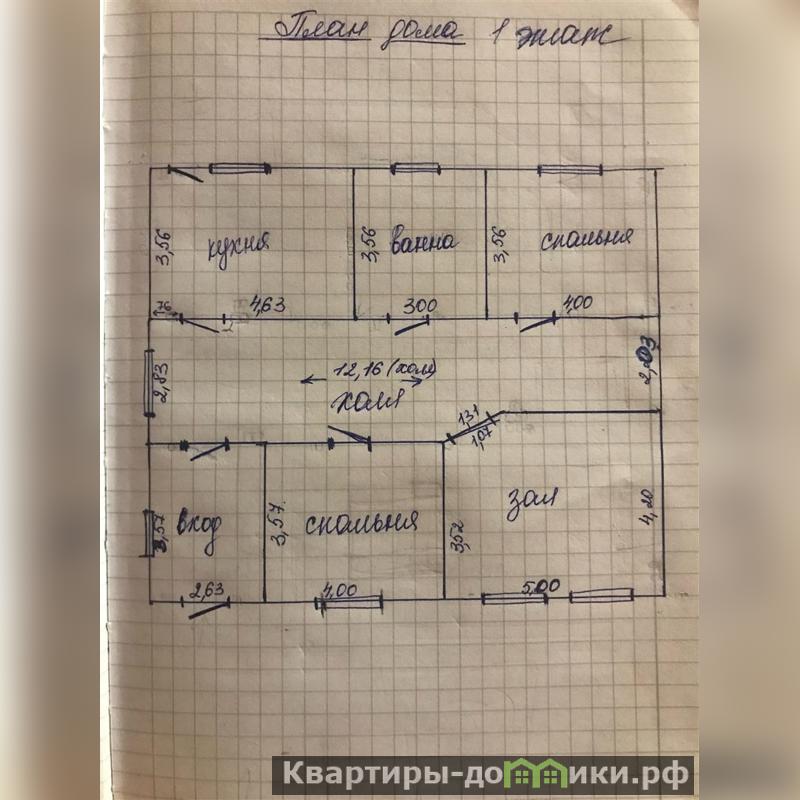 План дома 1 этаж
3,56
кухня
3,56
ванна
3,56
спальня
76
4,63
300
4,00
2,83
12,16 (холл)
холл
2,03
1,31
1,07
3,57
вход
3,57
спальня
3,52
зал
4,20
2,63
4,00
5,00
Квартиры-домики.рф